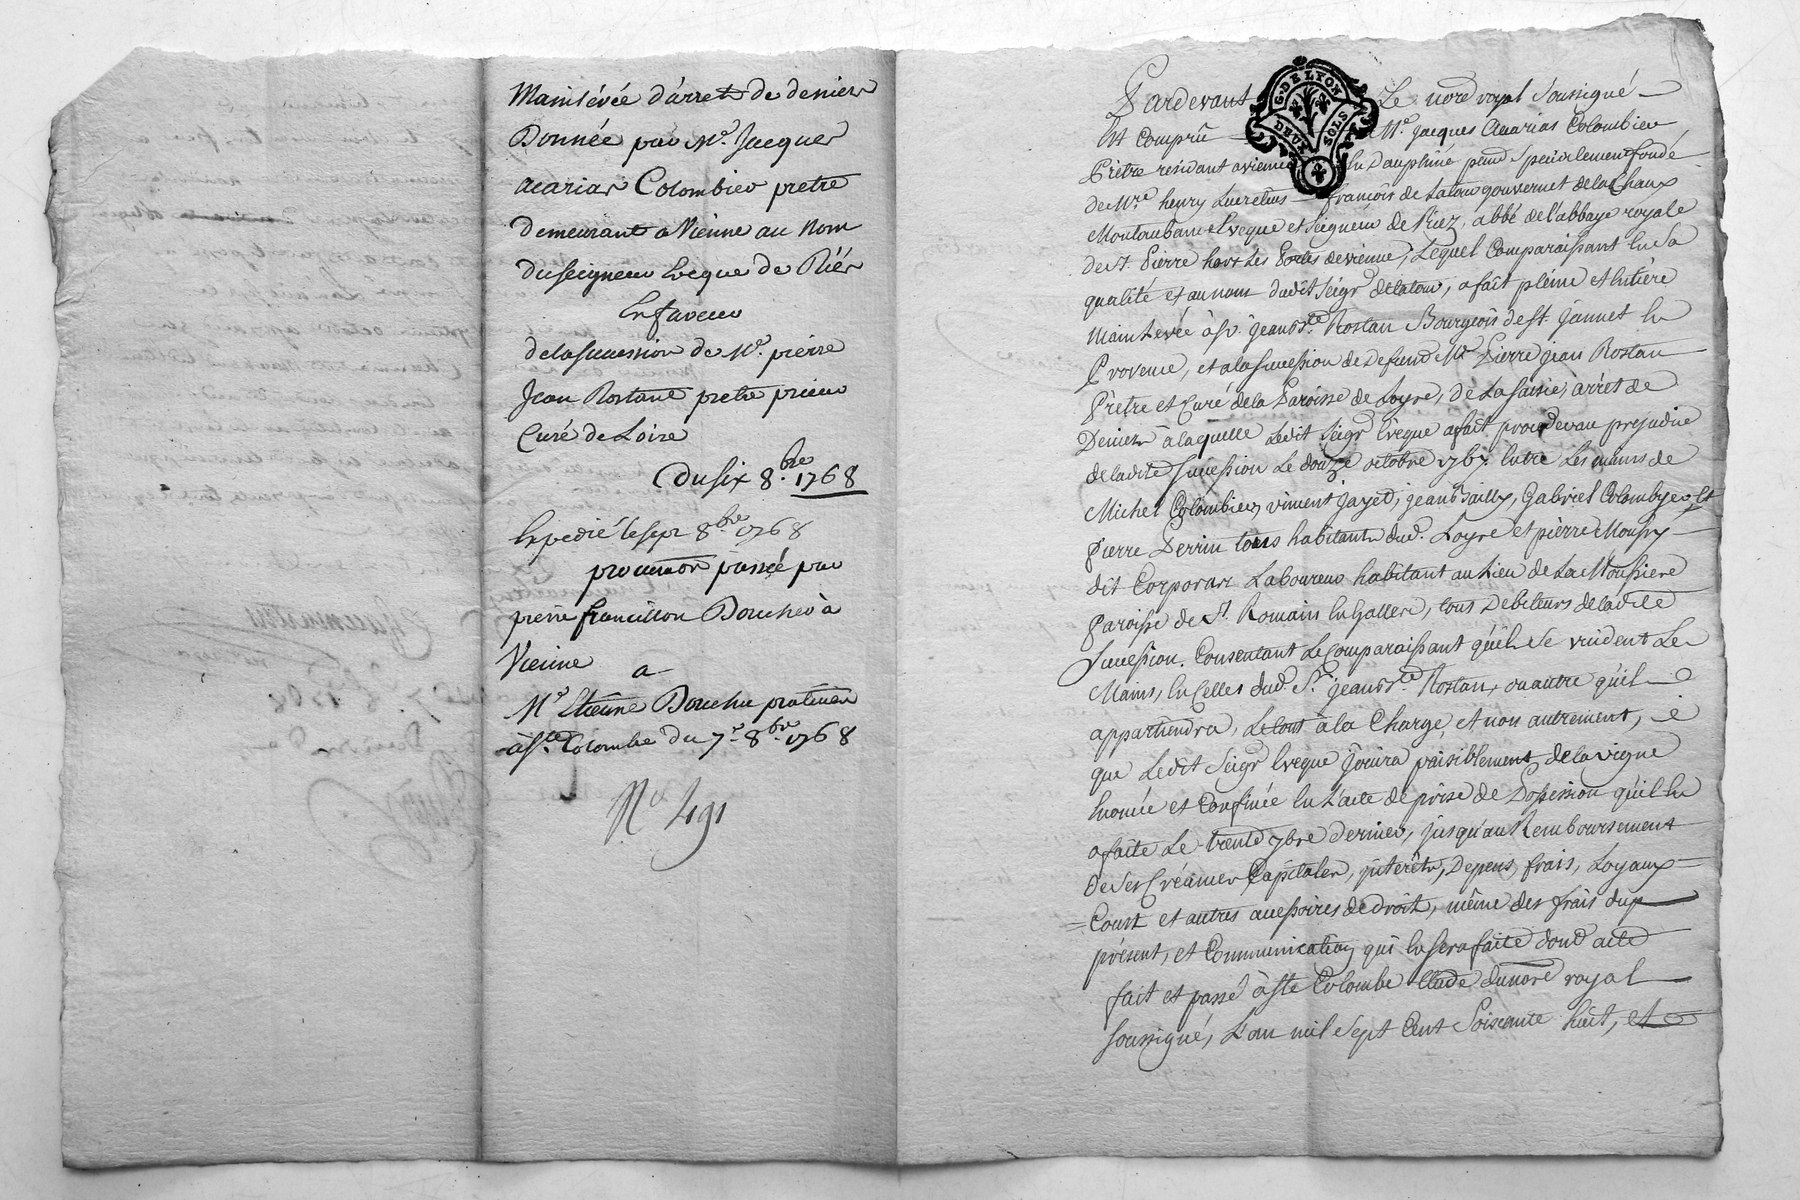 Mainlévée d'arret de deniers
Donnée par Mr. Jacques
acarias Colombier pretre
demeurant a Vienne au nom
du seigneur Eveque de Riés
En faveur
de la succession de Mr. pierre
Jean Rostans pretre prieur
Curé de Loire
Du six 8.bre 1768
Expedié le sept 8bre 1768
procuraon passée par
pierre francillon Boucher à
Vienne
a
Mr Etienne Bouchu praticien
à ste Colombe du 7e. 8.bre 1768
No 491
Pardevant Le nore royal soussigné
Est Comparu Mr. Jacques Acarias Colombier
Prètre residant a vienne En Dauphiné specialement fondé
de Mre henry Lucretius francois de Latour gouvernet de la Chaux
Montauban Eveque et seigneur de Riez, abbé de l'abbaye royale
de St. Pierre hors Les Portes de vienne, Lequel Comparaissant En sa
qualité et au nom dudit seigr delatour, a fait pleine et Entière
Main Levée à sr. jean Rostan Bourgeois de st. jannet En
Provence, et a la succession de Defunt Mre Pierre jean Rostan
Prètre et Curé de la Paroisse de Loyre, de La saisie, arrèt de
Deniers à laquelle Ledit seigr Evèque a fait procedé au prejudice
de ladite succession Le douze octobre 1767. Entre Les mains de
Michel Colombier, vincent jayet, jean Gabriel Colombyer, Et
Pierre Perrin tous habitants dud. Loyre et pierre
dit Corporas Laboureur habitant au Lieu de La Moussiere
Paroisse de St. Romain En Gallere, tous Debiteurs de ladite
succession. Consentant Le Comparaissant qu'ils se vuident Les
Mains, En Celles dud. Sr. jean Rostan, ou autre qu'il
appartiendra, Le tout à la Charge, et non autrement,
que Ledit seigr Eveque jouira paisiblement de la vigne
Enoncée et Confinée En L'acte de prise de Possession qu'il En
a faite Le trente 7bre dernier, jusqu'au Remboursement
de ses Créances Capitales, intérêts, Depens, frais, Loyaux
Couts et autres accessoires de droit, même des frais du
présent, et Communication qui En sera faite dont acte
fait et passé à ste Colombe Etude du nore royal
soussigné, L'an mil sept Cent soixante huit, et
G. DE LYON
DEUX SOLS